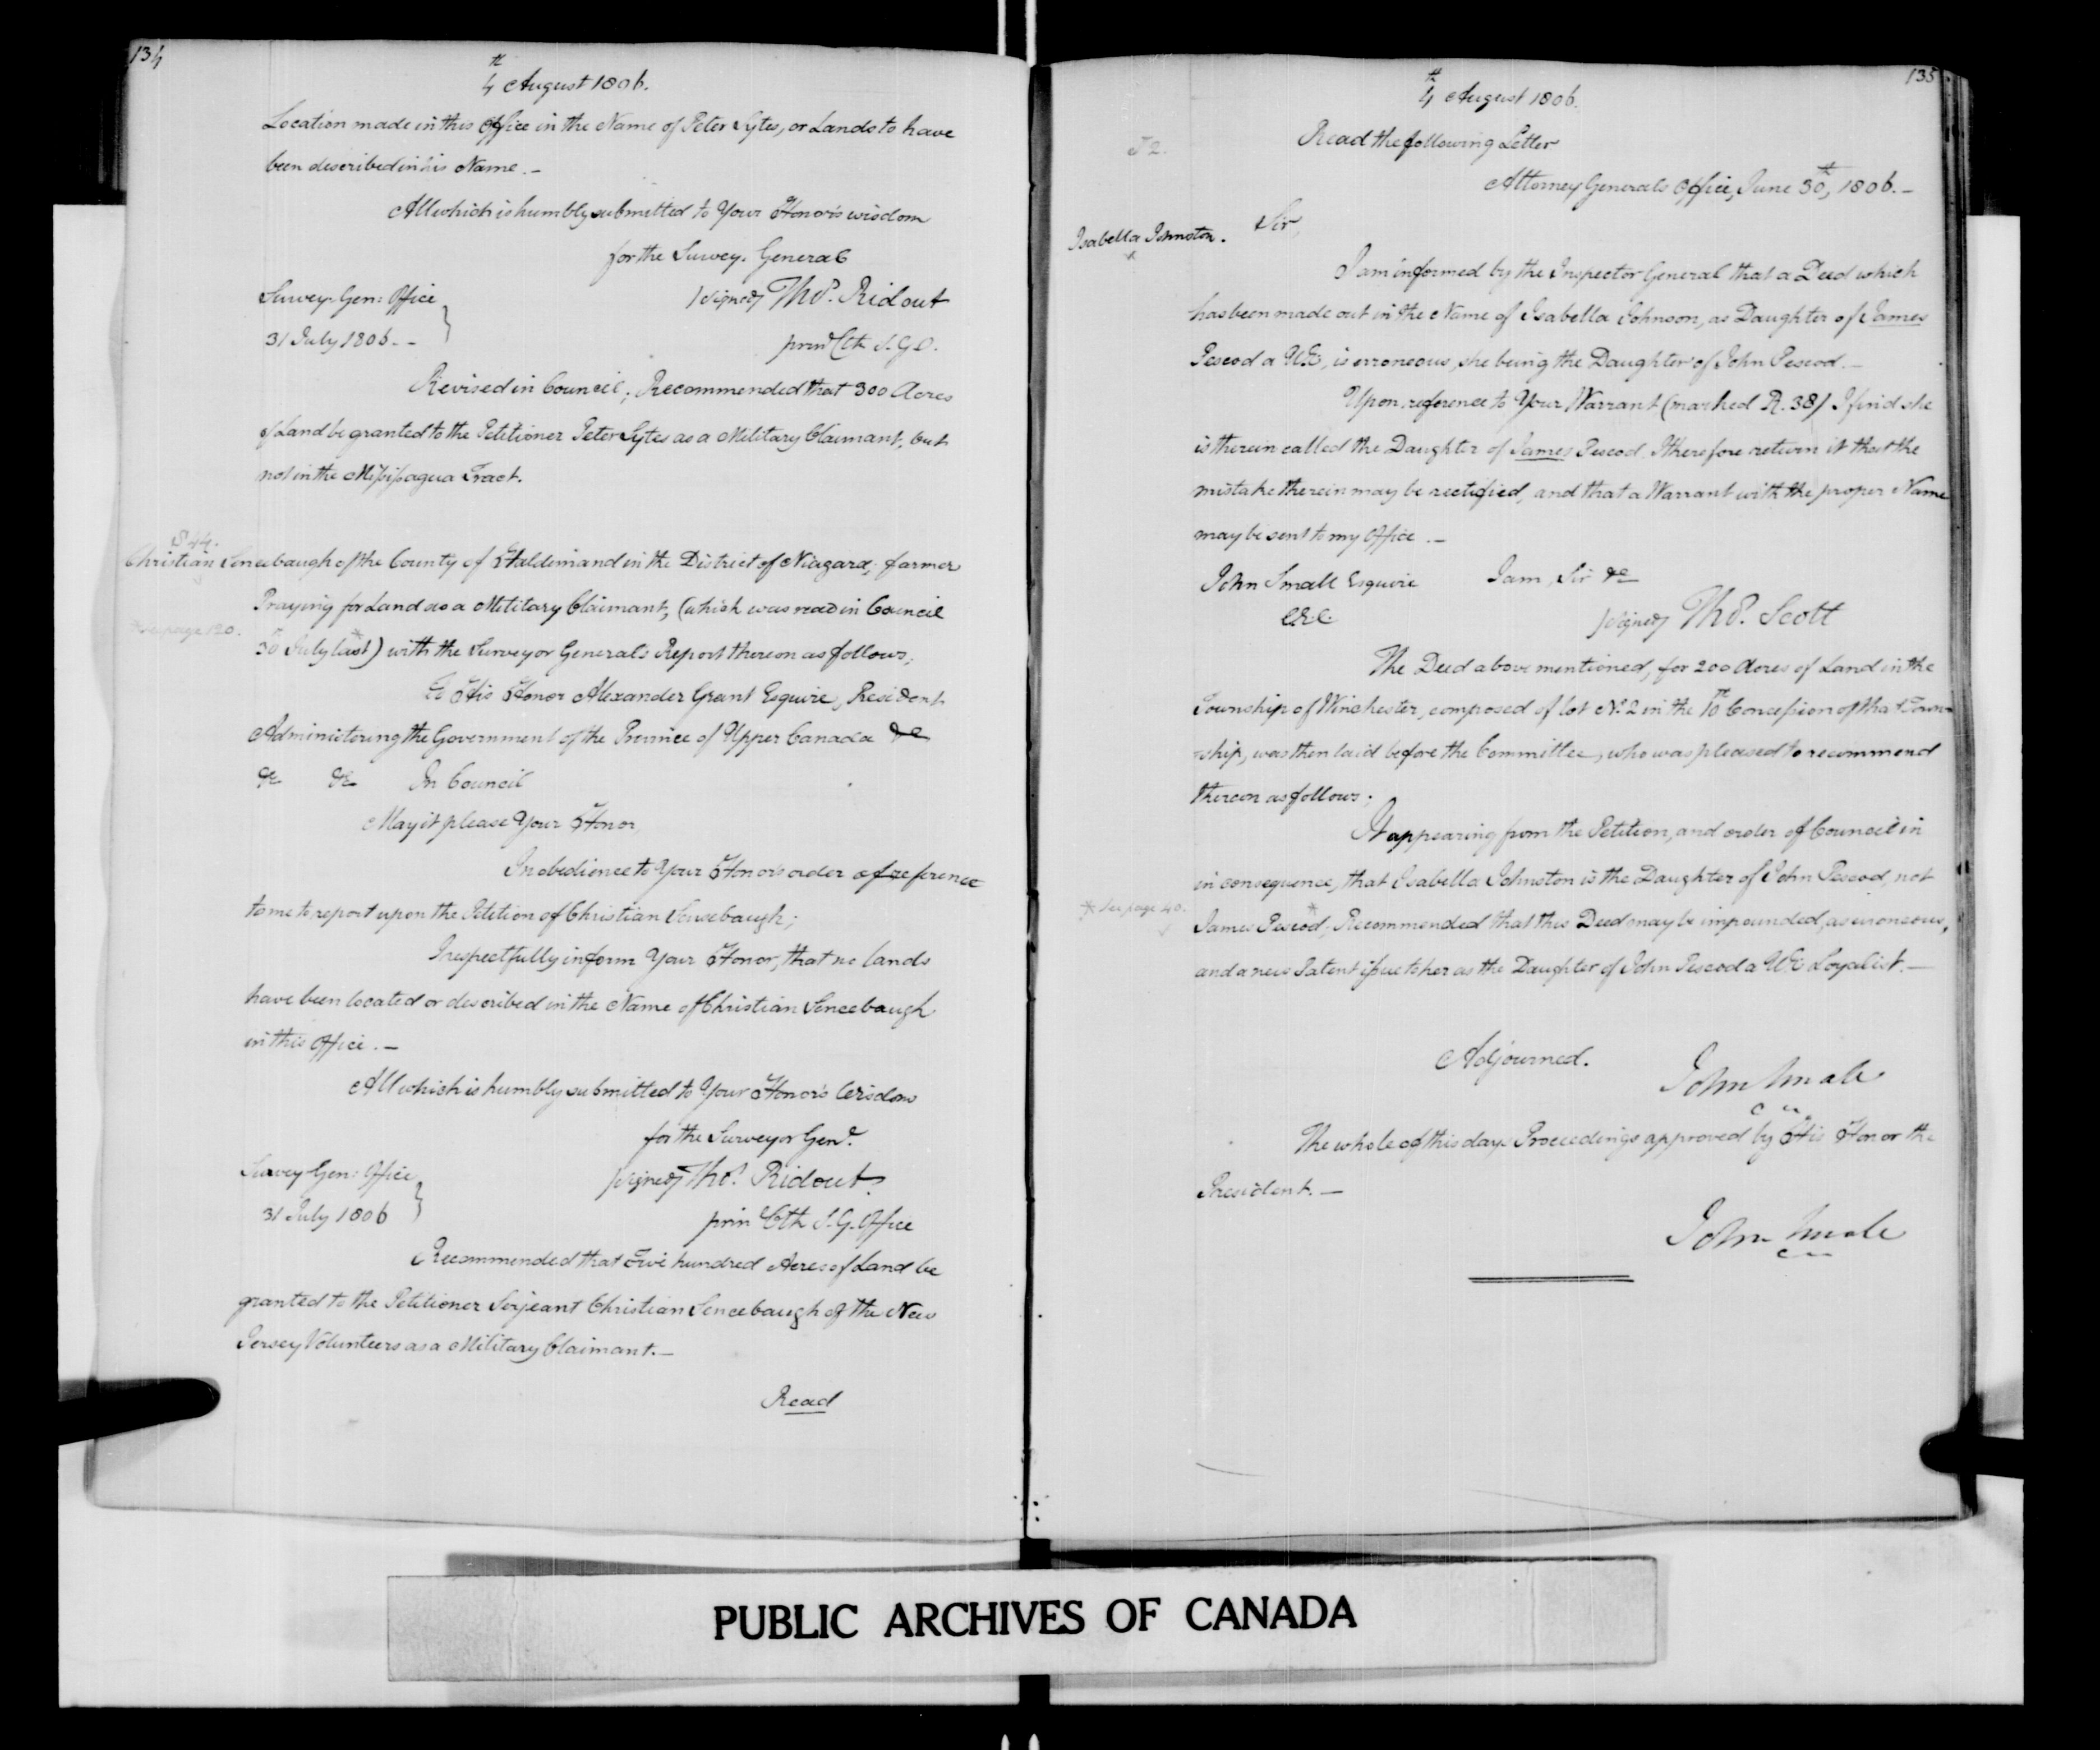 134
4th August 1806.
Location made in this Office in the Name of Peter Sytes, or Lands to have
been described in his Name. -
All which is humbly submitted to Your Honor's wisdom
for the Survey. General
(signed) Thos. Ridout
Survey. Gen: Office
31 July 1806. -
prin Clk S.G.O.
Revised in Council; Recommended that 300 Acres
of Land be granted to the Petitioner Peter Sytes as a Military Claimant, but
not in the Missisagua Tract.
S 44.
Christian Sencebaugh of the County of Haldimand in the District of Niagara; farmer
Praying for Land as a Military Claimant, (which was read in Council
* see page 120.
30th July last)* with the Surveyor Generals Report thereon as follows;
To His Honor Alexander Grant Esquire, President
Administering the Government of the Province of Upper Canada &c
&c &c In Council
May it please Your Honor,
In obedience to Your Honors order of reference
to me to report upon the Petition of Christian Sencebaugh;
I respectfully inform Your Honor, that no lands
have been located or described in the Name of Christian Sencebaugh
in this Office. -
All which is humbly submitted to Your Honor's Wisdom
for the Surveyor Genl.
Survey Gen: Office
(signed) Thos. Ridout.
31 July 1806
prin Clk S.G. Office
Recommended that Five hundred Acres of Land be
granted to the Petitioner Serjeant Christian Sencebaugh of the New
Jersey Volunteers as a Military Claimant. -
Read
135
4th August 1806.
Read the following Letter
J 2.
Attorney Generals Office, June 30th, 1806. -
Isabella Johnston.
Sir,
I am informed by the Inspector General that a Deed which
has been made out in the Name of Isabella Johnson, as Daughter of James
Pescod a UE, is erroneous, she being the Daughter of John Pescod. -
Upon reference to Your Warrant (marked R. 38) I find she
is therein called the Daughter of James Pescod. I therefore return it that the
mistake therein may be rectified, and that a Warrant with the proper Name
may be sent to my Office. -
John Small Esquire
I am, Sir &c
C.E.C.
(signed) Thos. Scott
The Deed above mentioned, for 200 Acres of Land in the
Township of Winchester, composed of lot No. 2 in the 10th Concession of that Town-
-ship, was then laid before the Committee, who was pleased to recommend
thereon as follows;
It appearing from the Petition, and order of Council in
in consequence, that Isabella Johnston is the Daughter of John Pescod, not
* See page 40.
James Pescod*; Recommended that this Deed may be impounded, as erroneous,
and a new Patent issue to her as the Daughter of John Pescod a UE Loyalist. -
Adjourned.
John Small
The whole of this days Proceedings approved by His Honor the
President. -
John Small
PUBLIC ARCHIVES OF CANADA